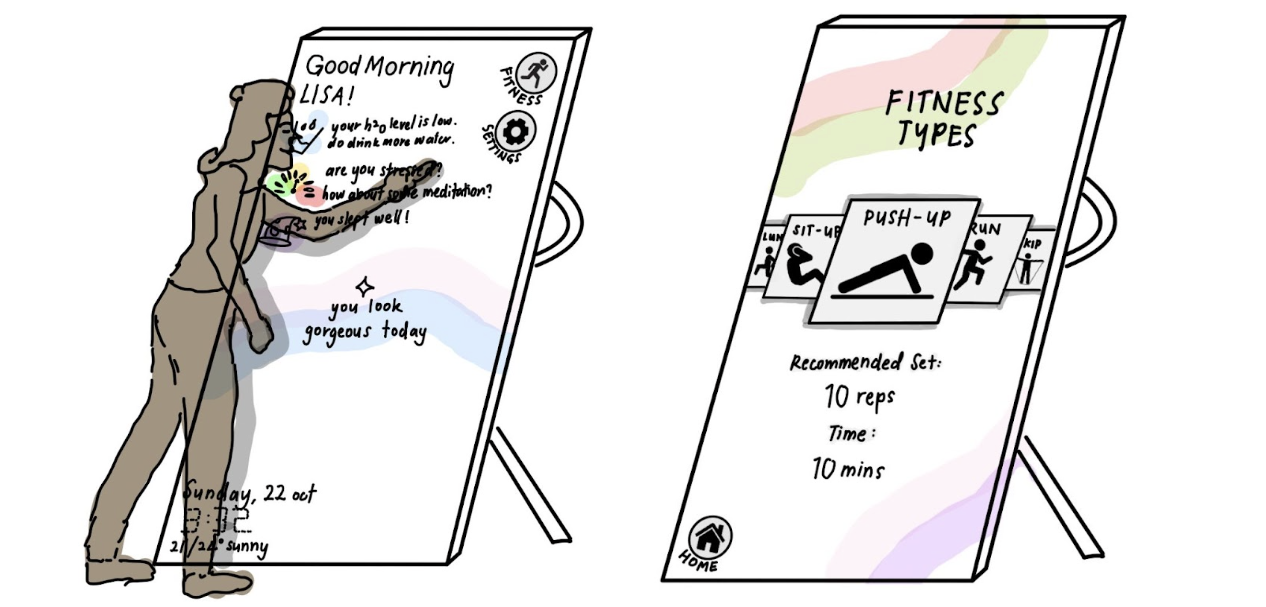 Good Morning
LISA!
FITNESS
SETTINGS
your h2o level is low.
do drink more water.
are you stressed?
how about some meditation?
you slept well!
you look
gorgeous today
Sunday, 22 oct
21/24° sunny
FITNESS
TYPES
LUN
SIT-UP
PUSH-UP
RUN
KIP
Recommended Set:
10 reps
Time:
10 mins
HOME